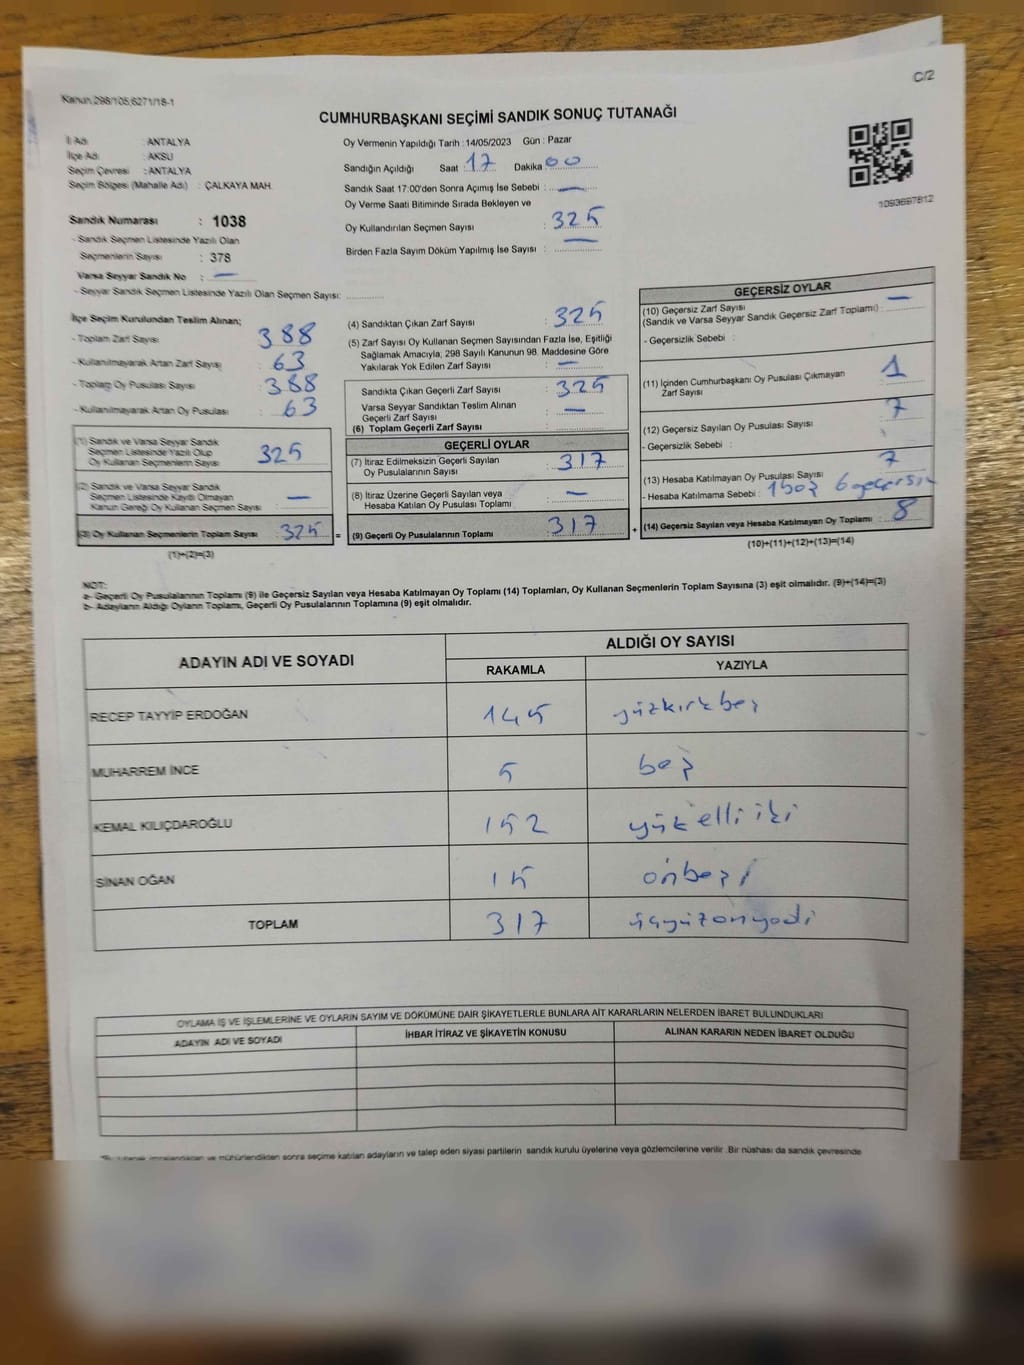 C/2
Kanun,298/105,6271/18-1
CUMHURBAŞKANI SEÇİMİ SANDIK SONUÇ TUTANAĞI
İl Adı : ANTALYA
İlçe Adı : AKSU
Seçim Çevresi : ANTALYA
Seçim Bölgesi (Mahalle Adı) : ÇALKAYA MAH.
Sandık Numarası : 1038
- Sandık Seçmen Listesinde Yazılı Olan
Seçmenlerin Sayısı : 378
Varsa Seyyar Sandık No : —
- Seyyar Sandık Seçmen Listesinde Yazılı Olan Seçmen Sayısı: ..............
Oy Vermenin Yapıldığı Tarih : 14/05/2023 Gün : Pazar
Sandığın Açıldığı Saat : 17 Dakika : 00
Sandık Saat 17:00'den Sonra Açımış İse Sebebi : —
Oy Verme Saati Bitiminde Sırada Bekleyen ve
Oy Kullandırılan Seçmen Sayısı : 325
Birden Fazla Sayım Döküm Yapılmış İse Sayısı : —
1093697812
İlçe Seçim Kurulundan Teslim Alınan;
- Toplam Zarf Sayısı : 388
- Kullanılmayarak Artan Zarf Sayısı : 63
- Toplam Oy Pusulası Sayısı : 388
- Kullanılmayarak Artan Oy Pusulası : 63
(1) Sandık ve Varsa Seyyar Sandık
Seçmen Listesinde Yazılı Olup
Oy Kullanan Seçmenlerin Sayısı : 325
(2) Sandık ve Varsa Seyyar Sandık
Seçmen Listesinde Kayıtlı Olmayan
Kanun Gereği Oy Kullanan Seçmen Sayısı : —
(3) Oy Kullanan Seçmenlerin Toplam Sayısı : 325 =
(1)+(2)=(3)
(4) Sandıktan Çıkan Zarf Sayısı : 325
(5) Zarf Sayısı Oy Kullanan Seçmen Sayısından Fazla İse, Eşitliği
Sağlamak Amacıyla; 298 Sayılı Kanunun 98. Maddesine Göre
Yakılarak Yok Edilen Zarf Sayısı : —
Sandıkta Çıkan Geçerli Zarf Sayısı : 325
Varsa Seyyar Sandıktan Teslim Alınan
Geçerli Zarf Sayısı : —
(6) Toplam Geçerli Zarf Sayısı :
GEÇERLİ OYLAR
(7) İtiraz Edilmeksizin Geçerli Sayılan
Oy Pusulalarının Sayısı : 317
(8) İtiraz Üzerine Geçerli Sayılan veya
Hesaba Katılan Oy Pusulası Toplamı : —
(9) Geçerli Oy Pusulalarının Toplamı : 317 +
GEÇERSİZ OYLAR
(10) Geçersiz Zarf Sayısı
(Sandık ve Varsa Seyyar Sandık Geçersiz Zarf Toplamı) : —
- Geçersizlik Sebebi :
(11) İçinden Cumhurbaşkanı Oy Pusulası Çıkmayan
Zarf Sayısı : 1
(12) Geçersiz Sayılan Oy Pusulası Sayısı : 7
- Geçersizlik Sebebi :
(13) Hesaba Katılmayan Oy Pusulası Sayısı : 7
- Hesaba Katılmama Sebebi : 1 boş 6 geçersiz
(14) Geçersiz Sayılan veya Hesaba Katılmayan Oy Toplamı : 8
(10)+(11)+(12)+(13)=(14)
NOT:
a- Geçerli Oy Pusulalarının Toplamı (9) ile Geçersiz Sayılan veya Hesaba Katılmayan Oy Toplamı (14) Toplamları, Oy Kullanan Seçmenlerin Toplam Sayısına (3) eşit olmalıdır. (9)+(14)=(3)
b- Adayların Aldığı Oyların Toplamı, Geçerli Oy Pusulalarının Toplamına (9) eşit olmalıdır.
ADAYIN ADI VE SOYADI ALDIĞI OY SAYISI
RAKAMLA YAZIYLA
RECEP TAYYİP ERDOĞAN 145 yüzkırkbeş
MUHARREM İNCE 5 beş
KEMAL KILIÇDAROĞLU 152 yüz elli iki
SİNAN OĞAN 15 onbeş
TOPLAM 317 üçyüzonyedi
OYLAMA İŞ VE İŞLEMLERİNE VE OYLARIN SAYIM VE DÖKÜMÜNE DAİR ŞİKAYETLERLE BUNLARA AİT KARARLARIN NELERDEN İBARET BULUNDUKLARI
ADAYIN ADI VE SOYADI İHBAR İTİRAZ VE ŞİKAYETİN KONUSU ALINAN KARARIN NEDEN İBARET OLDUĞU
tutanak imzalandıktan ve mühürlendikten sonra seçime katılan adayların ve talep eden siyasi partilerin sandık kurulu üyelerine veya gözlemcilerine verilir .Bir nüshası da sandık çevresinde